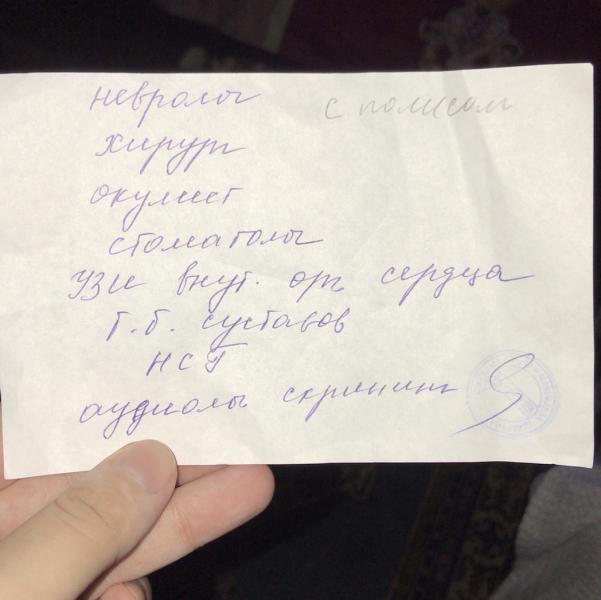 невролог
с полисом
хирург
окулист
стоматолог
УЗИ внут. орг. сердца
т.б. суставов
НСГ
аудиолог скрининг